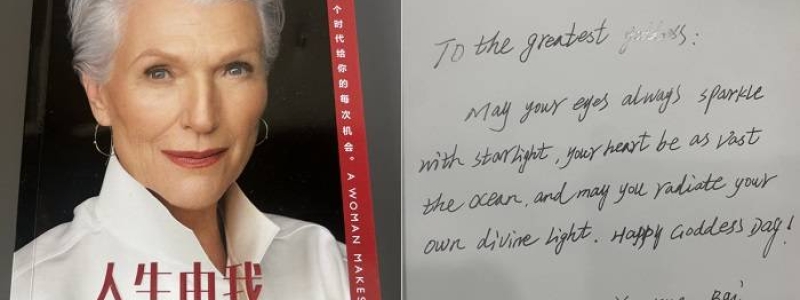 个时代给你的每次机会。A WOMAN MAKES
人生由我
To the greatest
May your eyes always sparkle
with starlight, your heart be as vast
the ocean, and may you radiate your
own divine light. Happy Goddess Day!